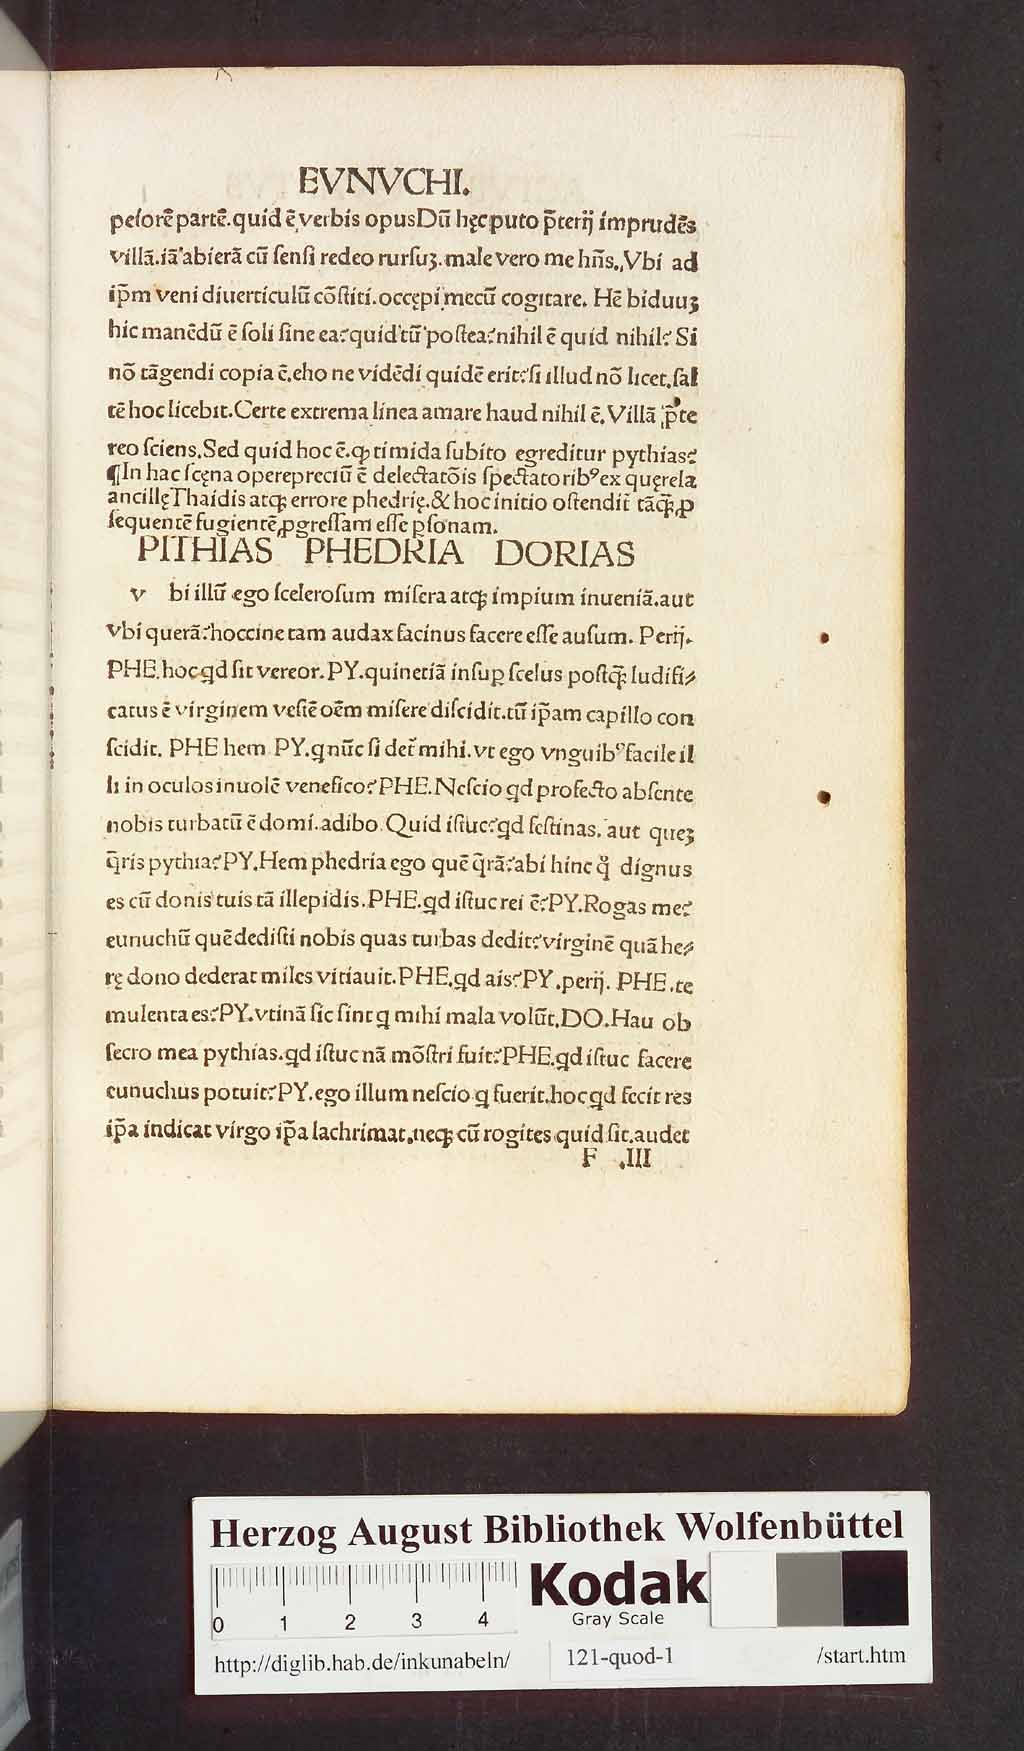 EVNVCHI.
peſorē partē.quid ē verbis opusDū hęc puto p̄terij imprudēs
villā.iā abierā cū ſenſi redeo rurſuꝫ.male vero me hn̄s.Vbi ad
ip̄m veni diuerticulū cōſtiti.occępi mecū cogitare. Hē biduuꝫ
hic manēdū ē ſoli ſine ea?quid tū poſtea?nihil ē quid nihil? Si
nō tāgendi copia ē.eho ne vidēdi quidē erit?ſi illud nō licet.ſal
tē hoc licebit.Certe extrema linea amare haud nihil ē.Villā p̄te
reo ſciens.Sed quid hoc ē.ꝙ timida ſubito egreditur pythias?
¶In hac ſcęna operepreciū ē delectatōis ſpectatoribꝰ ex quęrela
ancillę Thaidis atqꝫ errore phedrię.& hoc initio oſtendit̄ tāꝗꝫ ꝓ
ſequentē fugientē ꝓgreſſam eſſe ꝑſonam.
PITHIAS PHEDRIA DORIAS
v bi illū ego ſceleroſum miſera atqꝫ impium inueniā.aut
Vbi querā?hoccine tam audax facinus facere eſſe auſum. Perij.
PHE.hoc ꝗd ſit vereor. PY.quinetiā inſuꝑ ſcelus poſtꝗꝫ ludifi⸗
catus ē virginem veſtē oēm miſere diſcidit.tū ip̄am capillo con
ſcidit. PHE hem PY.ꝗ nūc ſi det̄ mihi.vt ego vnguibꝰ facile il
li in oculos inuolē venefico?PHE.Neſcio ꝗd profecto abſente
nobis turbatū ē domi.adibo.Quid iſtuc?ꝗd feſtinas.aut queꝫ
q̄ris pythia?PY.Hem phedria ego quē q̄rā?abi hinc ꝗͦ dignus
es cū donis tuis tā illepidis.PHE.ꝗd iſtuc rei ē?PY.Rogas me?
eunuchū quē dediſti nobis quas turbas dedit?virginē quā he⸗
rę dono dederat miles vitiauit.PHE.ꝗd ais?PY.perij. PHE.te
mulenta es?PY.vtinā ſic ſint ꝗ mihi mala volūt.DO.Hau ob
ſecro mea pythias.ꝗd iſtuc nā mōſtri fuit?PHE.ꝗd iſtuc facere
eunuchus potuit?PY.ego illum neſcio ꝗ fuerit.hoc ꝗd fecit res
ip̄a indicat virgo ip̄a lachrimat.neqꝫ cū rogites quid ſit.audet
F .III
Herzog August Bibliothek Wolfenbüttel
0 1 2 3 4
Kodak
Gray Scale
http://diglib.hab.de/inkunabeln/ 121-quod-1 /start.htm